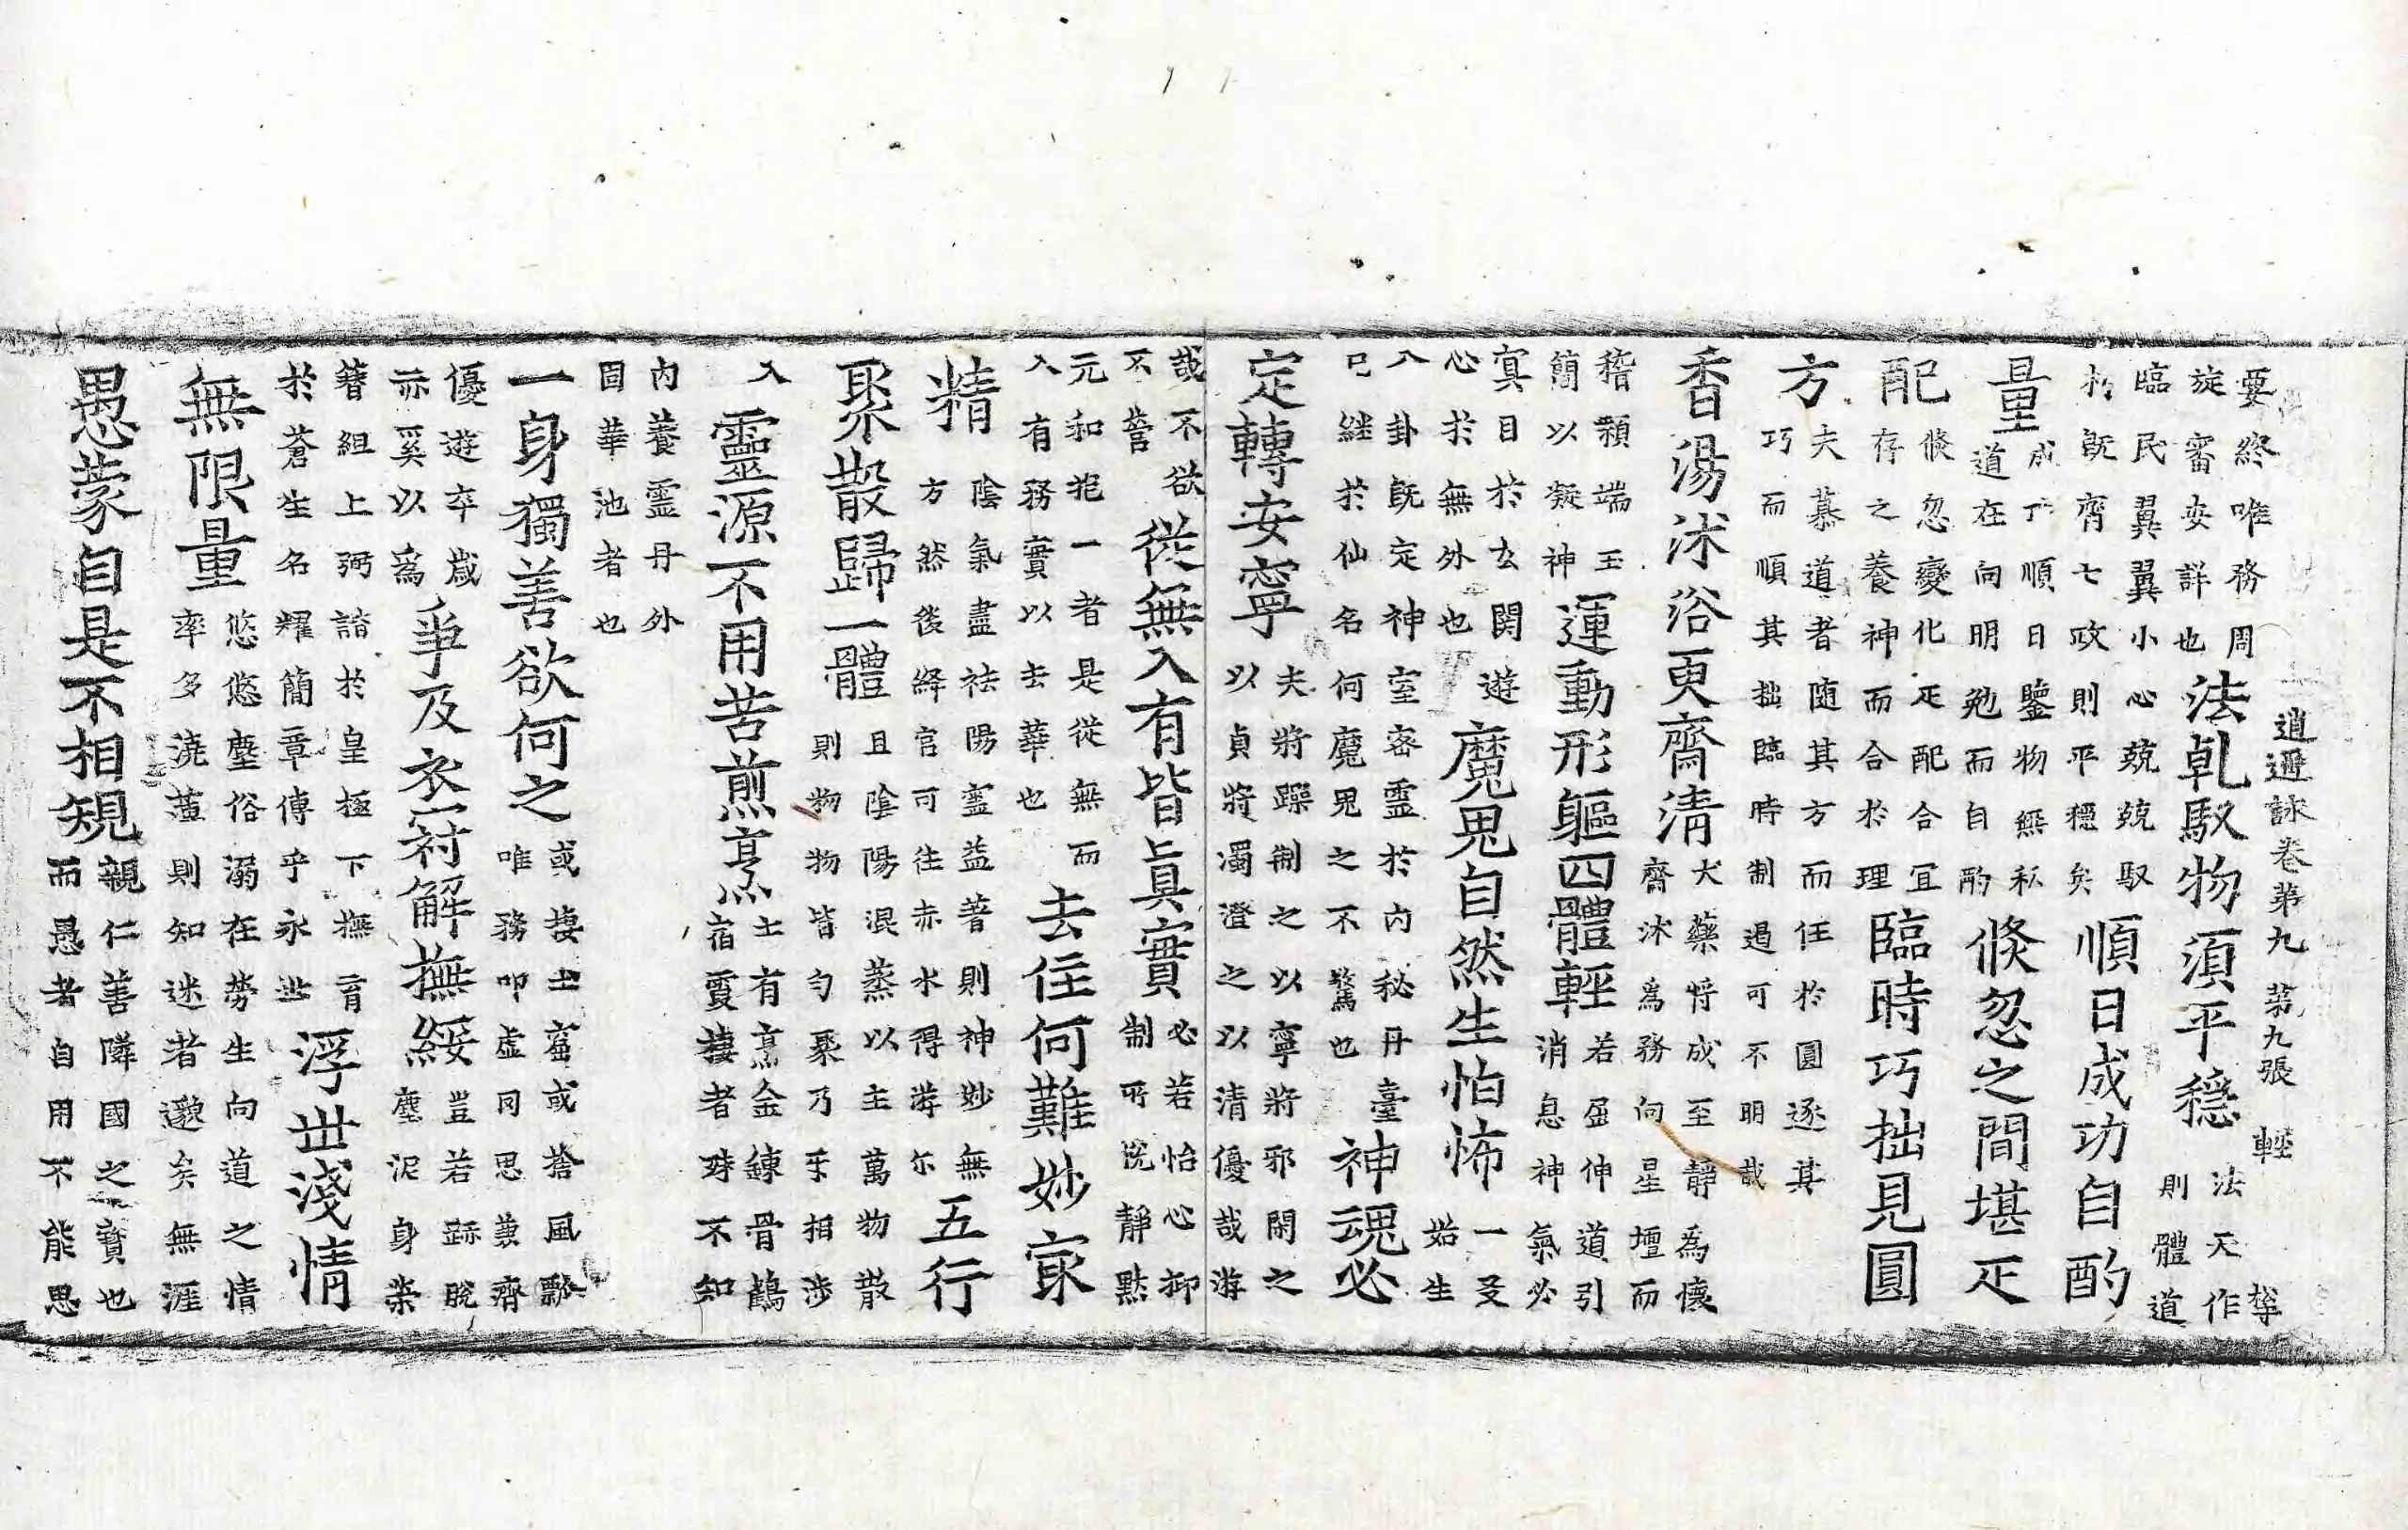 逍遥詠卷第九 第九張 輕
要終唯務周
旋審安詳也
法乹馭物須平穩
法天作
則體道
臨民翼翼小心兢兢馭
旣齊七政則平穩矣
順日成功自酌
量
成功順日鑒物無私
道在向明勉而自酌
倐忽之間堪疋
配
倐忽變化疋配合冝
存之養神而合於理
臨時巧拙見圓
方
夫慕道者随其方而任於圓逐其
巧而順其拙臨時制過可不明哉
香湯沐浴更齋清
大藥將成至靜爲懷
齋沐爲務向星壇而
稽顙端玉
簡以凝神
運動形軀四體輕
若屈伸道引
消息神氣必
寘目於玄関遊
心於無外也
魔鬼自然生怕怖
一爻
始生
八卦旣定神室密靈於內秘丹臺
已継於仙名何魔鬼之不驚也
神魂必
定轉安寧
夫將躁制之以寧將邪閑之
以貞將濁澄之以清優哉游
哉不欲
不營
從無入有皆眞實
必若怡心抑
制所恱靜黙
元和抱一者是從無而
入有務實以去華也
去住何難妙㝡
精
陰氣盡祛陽靈益著則神妙無
方然後絳宮可往赤水得游尔
五行
聚散歸一體
且陰陽混蒸以主萬物散
則物物皆勻聚乃乎相渉
入
靈源不用苦煎烹
士有烹金鍊骨鶴
宿霞棲者殊不知
內養靈丹外
固華池者也
一身獨善欲何之
或棲士窟或捨風飄
唯務叩虛冈思兼濟
優遊卒歳
亦奚以爲
爭及衣衿解撫綏
豈若跡脫
塵泥身榮
簪組上弼諧於皇極下撫育
於蒼生名耀簡章傳乎永世
浮世淺情
無限量
悠悠塵俗溺在勞生向道之情
率多澆薄則知迷者邈矣無涯
愚蒙自是不相規
親仁善隣國之寶也
而愚者自用不能思